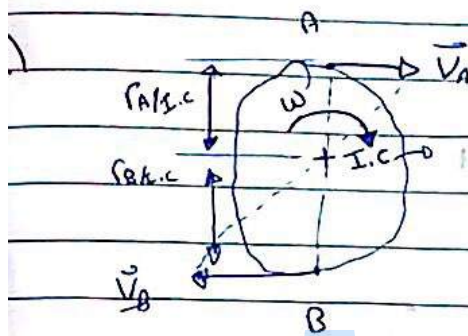 A
V_A
r_A/I.C
ω
I.C
r_B/I.C
V_B
B